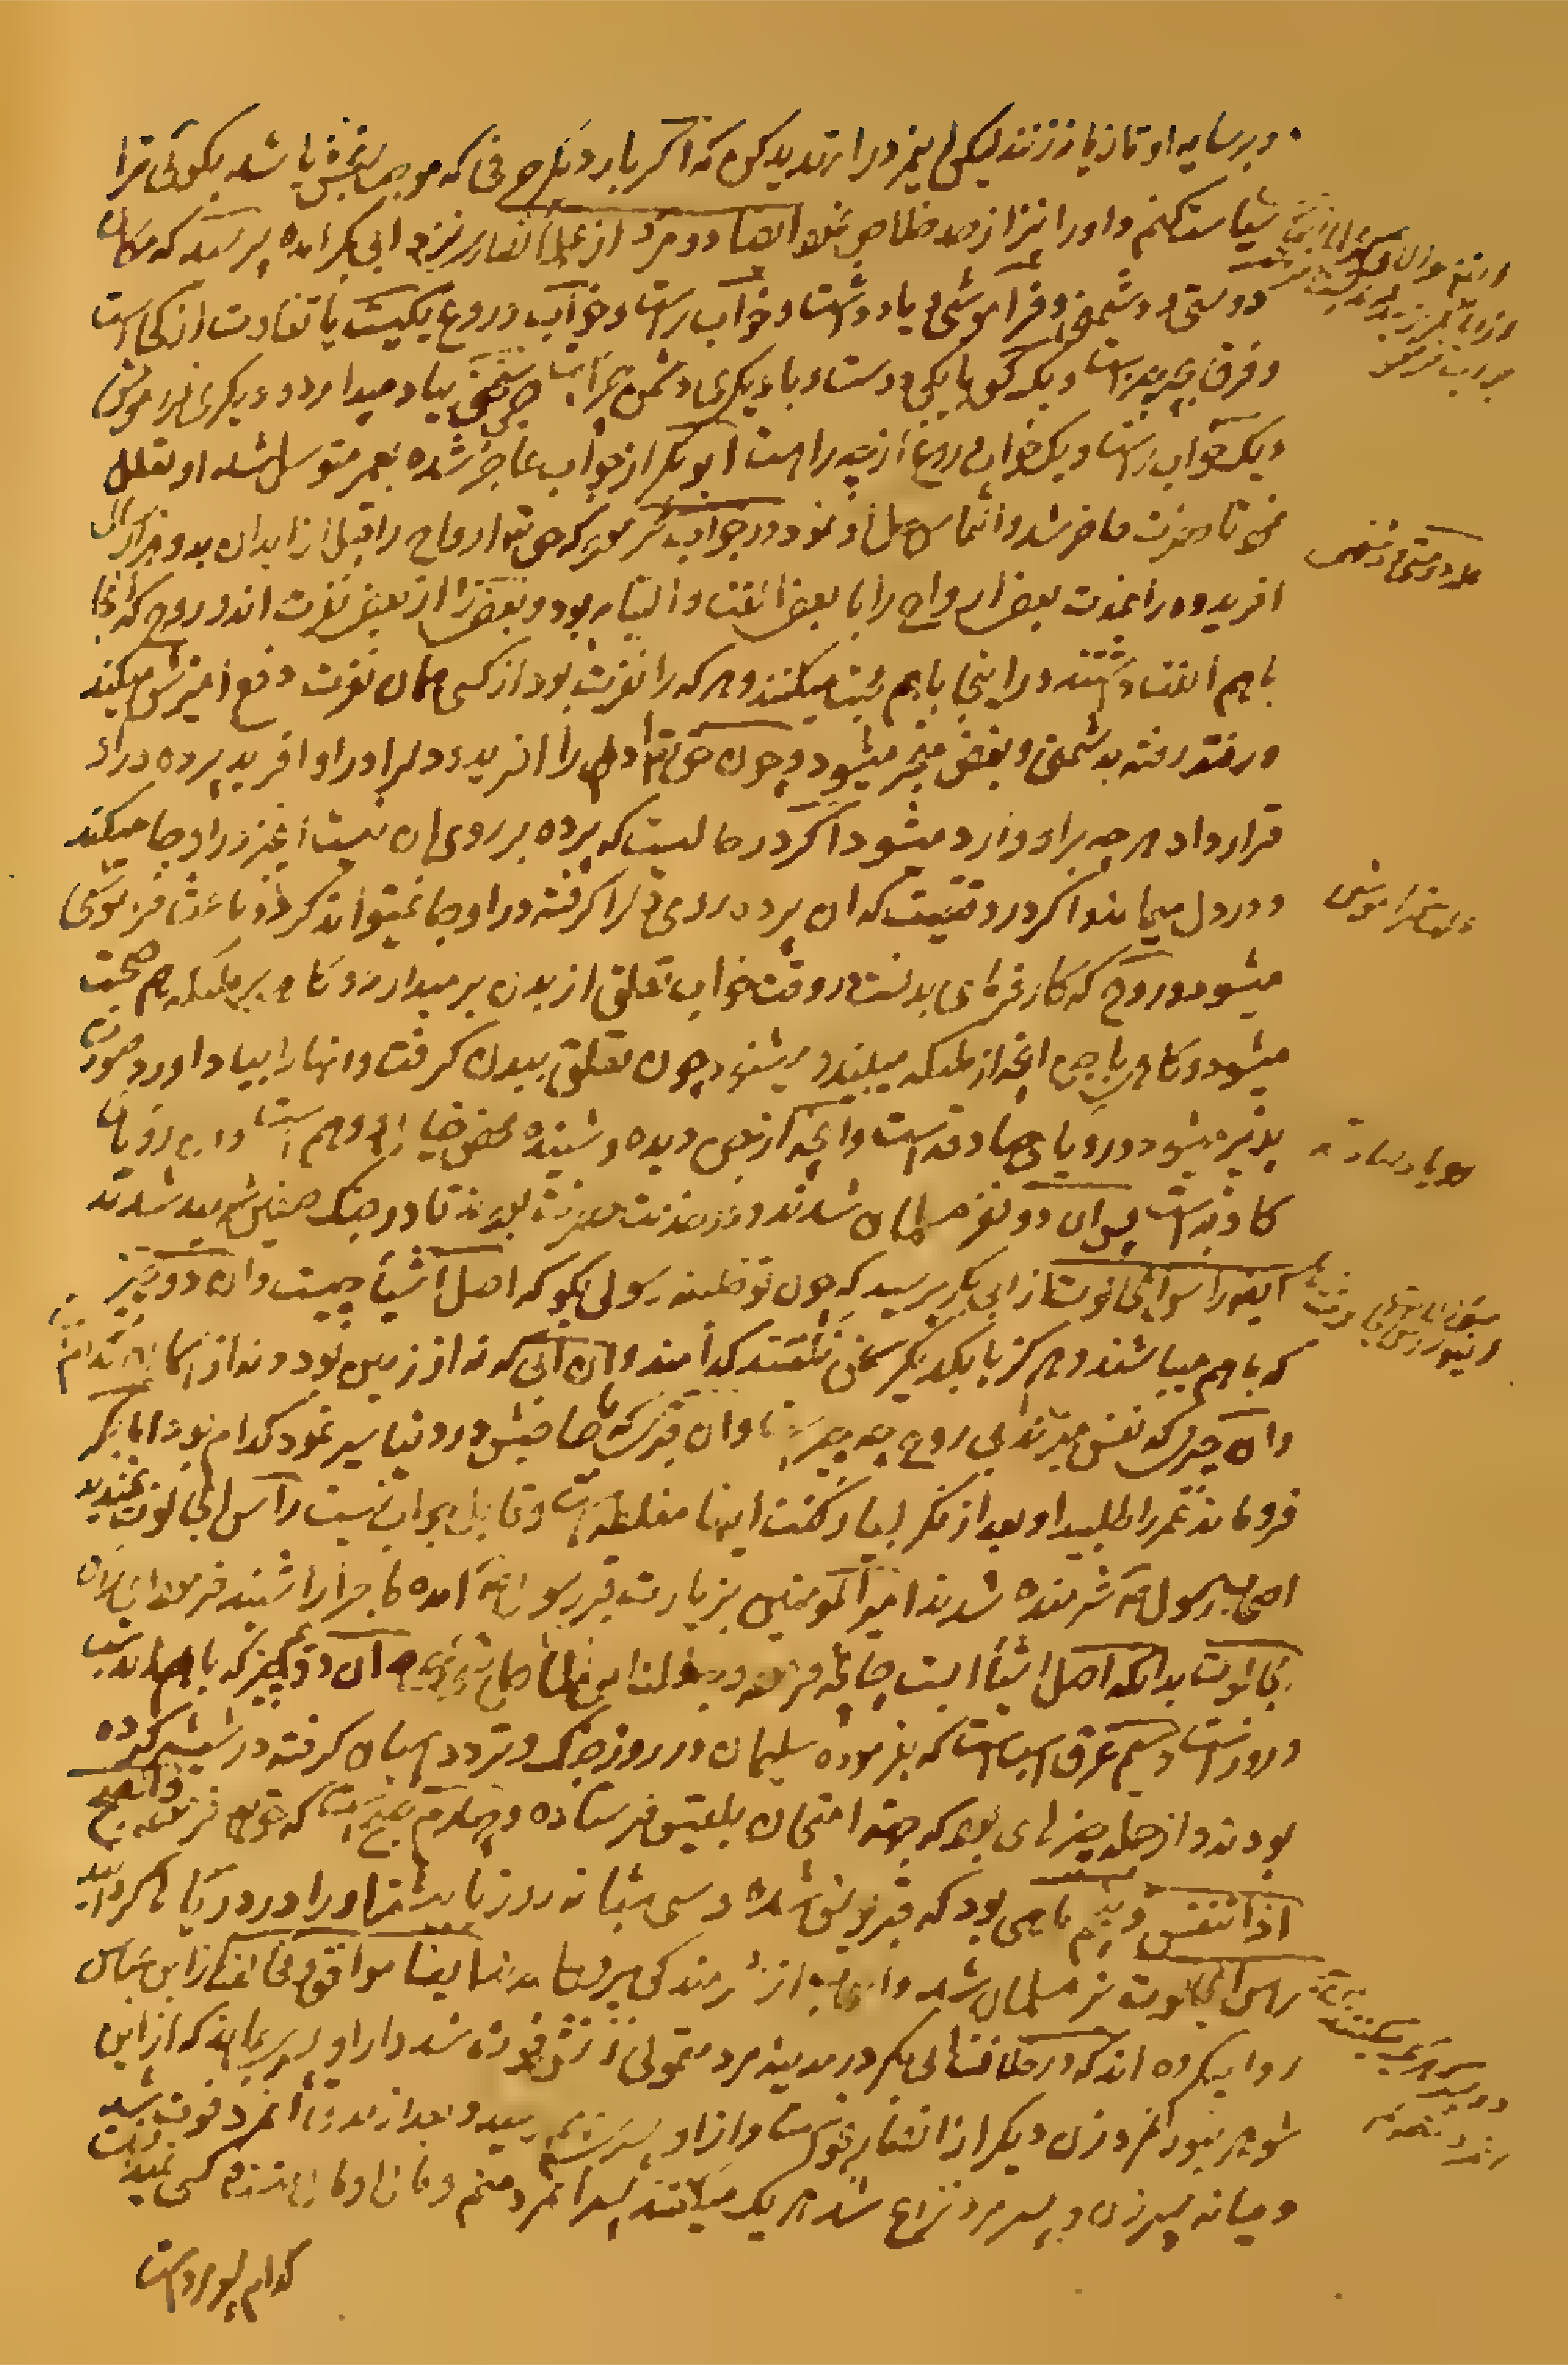 و بر سایه او تازیانه زنند لیکن این مرد را تهدید کن که اگر بار دیگر حرفی که موجب رنجش باشد بگوئی ترا
سیاست کنم و او را نیز از صد خلاص نمود ایضا دو مرد از علمای نصاری نزد ابی بکر آمده پرسید که مکان
دوستی و دشمنی و فراموشی و یاد داشت و خواب راست و خواب دروغ یکیست یا تفاوت از کجاست
و فرق به چیست و یک کس با یکی دوست و با دیگری دشمن چراست سخنی بیاد میدارد و دیگری فراموش
و یک خواب راست و یک خواب دروغ از چه راهست ابوبکر از جواب عاجز شده بعمر متوسل شد او تعلل
نمود تا حضرت حاضر شد و التماس حل او نمود در جواب فرمود که حق تعالی ارواح را قبل از ابدان بدو هزار سال
آفریده در آنوقت بعض ارواح را با بعض الفت و التیام بود و بعض را از بعض نفرت اند و روح که آنجا
باهم الفت داشتند در اینجا باهم محبت میکنند و هر که را نفرت بود از کسی همان نفرت دفع آمیزش میکند
و رفته رفته بدشمنی و بغض منجر میشود و چون حق تعالی آدم را آفرید و دل را در او آفرید پرده در او
قرار داد هر چه بر او وارد میشود اگر در حالیست که پرده بر روی آن نیست آنچیز در او جا میکند
و در دل میماند و اگر در وقتیست که آن پرده روی دل را گرفته در او جا نمیتواند کرد و باعث فراموشی
میشود و روح که کارفرمای بدنست در وقت خواب تعلق از بدن بر میدارد و گاه بر ملئکه هم صحبت
میشود و گاه با جن آنچه از ملئکه میبیند و میشنود چون تعلق ببدن گرفت و آنها را بیاد آورد صورت
پذیر میشود و رویای صادقه است و آنچه از جن دیده و شنیده محض خیال و وهم است و این رویای
کاذبه است پس آن دو نفر مسلمان شدند و در خدمت حضرت بودند تا در جنگ صفین شهید شدند
ایضا راس الجالوت از ابی بکر پرسید که چون تو خلیفه رسولی بگو که اصل اشیا چیست و آن دو چیز
که باهم میباشند و هرگز با یکدیگر سخن نگفتند کدامند و آن آبی که نه از زمین بود و نه از آسمان کدام
و آن چیزی که نفس میزند بی روح چه چیز است و آن قبری که با صاحبش در دنیا سیر نمود کدام بود ابابکر
فروماند عمر را طلبید او بعد از فکر بسیار گفت اینها مغلطه است و قابل جواب نیست راس الجالوت بخندید
اصحاب رسول الله شرمنده شدند امیر المومنین بزیارت قبر رسول الله آمده ماجرا را شنید فرمود ای راس
الجالوت بدانکه اصل اشیا آبست چنانچه فرموده و جعلنا من الماء کل شیء حی و آن دو چیز که باهمند شب
و روز است و سیم عرق اسب است که بفرموده سلیمان در روز جنگ و تردد اسبان گرفته در شیشه کرده
بودند و از جمله چیزهای بود که جهة امتحان بلقیس فرستاده و چهارم صبح است که حق تعالی فرموده و الصبح
اذا تنفس و پنجم ماهی بود که قبر یونس شده و سی شبانه روز یا بیشتر او را در دریا گردانید
راس الجالوت نیز مسلمان شد و اصحاب از شرمندگی بیرون آمدند ایضا موافق و مخالف از ابن عباس
روایت کرده اند که در خلافت ابی بکر در مدینه مرد متمولی زنش فوت شد و از او پسری ماند که از این
شوهر نبود آنمرد زن دیگر از انصار خواست و از او پسری بهم رسید و بعد از مدتی آنمرد فوت شد
و میانه پسر زن و پسر مرد نزاع شد هر یک میگفتند پسر آنمرد منم و مال او مال منست و کسی نمیدانست
کدام پسر مرد است
علت دوستی و دشمنی
علت فراموشی
رویای صادقه